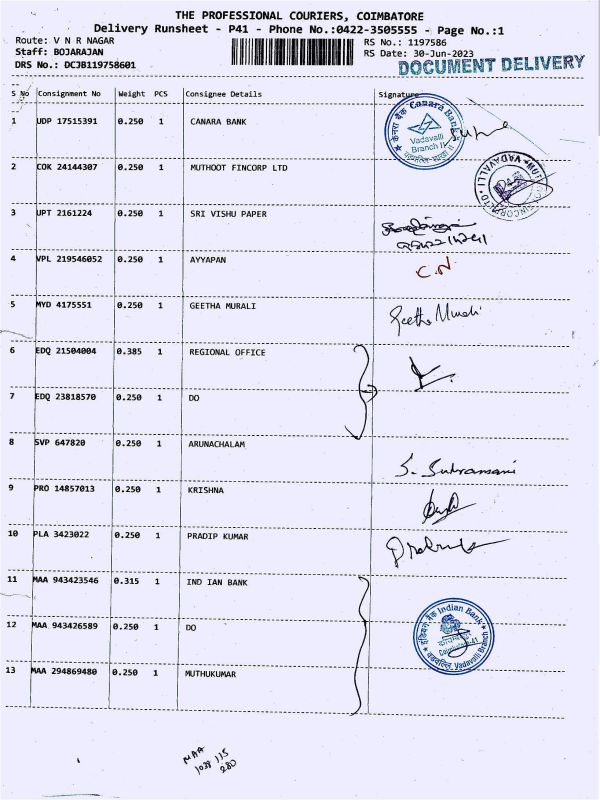 THE PROFESSIONAL COURIERS, COIMBATORE
Delivery Runsheet - P41 - Phone No.:0422-3505555 - Page No.:1
Route: V N R NAGAR
Staff: BOJARAJAN
DRS No.: DCJB119758601
RS No.: 1197586
RS Date: 30-Jun-2023
DOCUMENT DELIVERY
S No Consignment No Weight PCS Consignee Details Signature
1 UDP 17515391 0.250 1 CANARA BANK
केनरा बैंक Canara Bank
Vadavalli
Branch II
2 COK 24144307 0.250 1 MUTHOOT FINCORP LTD
VADAVALLI
3 UPT 2161224 0.250 1 SRI VISHU PAPER
4 VPL 219546052 0.250 1 AYYAPAN
C.N
5 MYD 4175551 0.250 1 GEETHA MURALI
Geetha Murali
6 EDQ 21504004 0.385 1 REGIONAL OFFICE
7 EDQ 23818570 0.250 1 DO
8 SVP 647820 0.250 1 ARUNACHALAM
S. Subramani
9 PRO 14857013 0.250 1 KRISHNA
10 PLA 3423022 0.250 1 PRADIP KUMAR
11 MAA 943423546 0.315 1 IND IAN BANK
इंडियन बैंक Indian Bank
Vadavalli Branch
12 MAA 943426589 0.250 1 DO
13 MAA 294869480 0.250 1 MUTHUKUMAR
MAA
1038 115
280